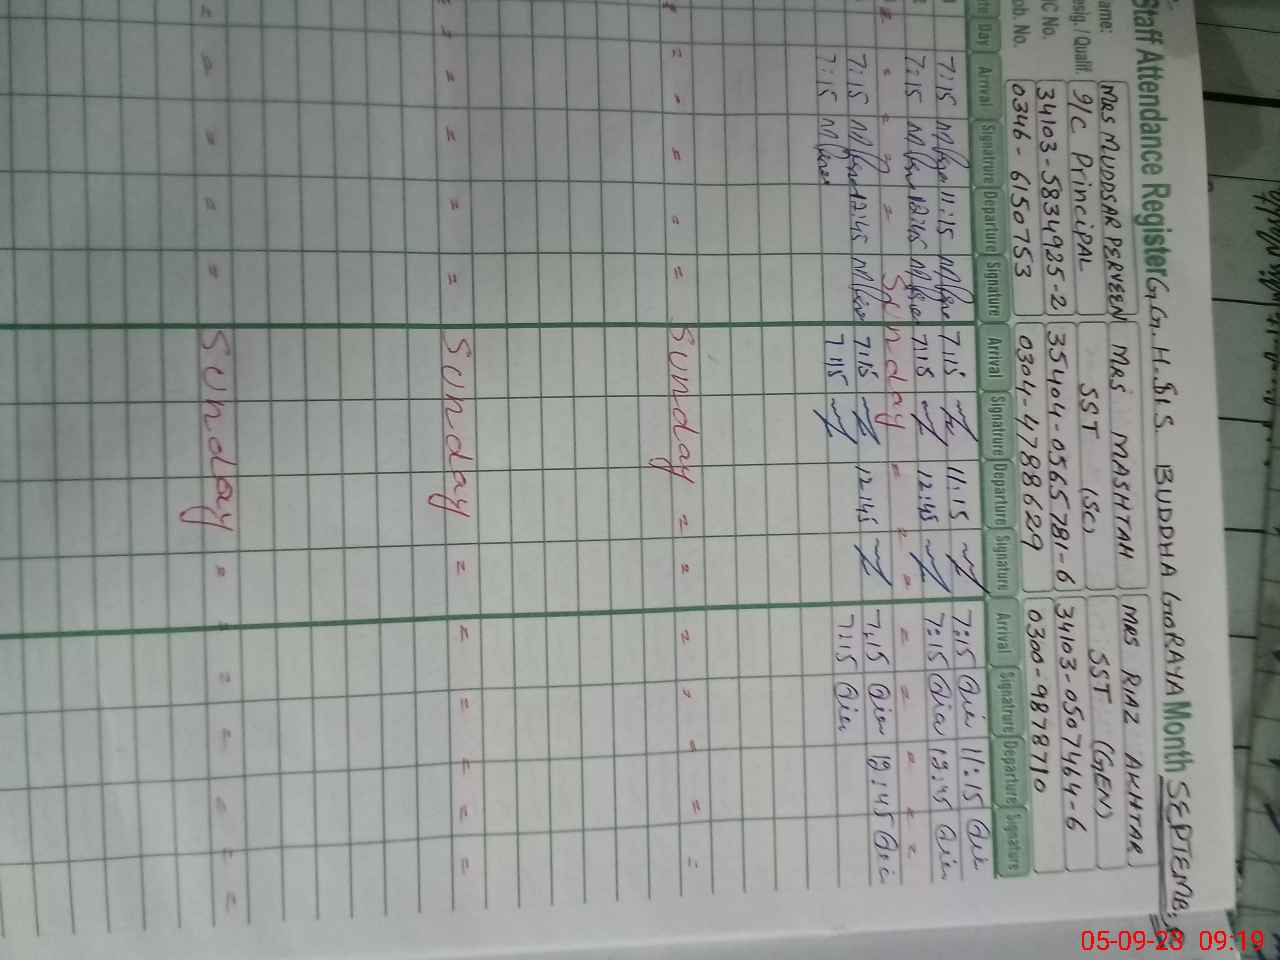 Staff Attendance Register G.G.H.S I.S BUDDHA GORAYA Month SEPTEMB
ame: MRS MUDDSAR PERVEEN MRS MASHTAH MRS RIAZ AKHTAR
esig. / Qualif. I/C PRINCIPAL SST (SC) SST (GEN)
IC No. 34103-5834925-2 35404-0565781-6 34103-0507464-6
ob. No. 0346-6150753 0304-4788629 0300-9878710
Day Arrival Signatrure Departure Signature Arrival Signatrure Departure Signature Arrival Signatrure Departure Signature
7:15 11:15 7:15 11:15 7:15 11:15
7:15 12:45 7:15 12:45 7:15 12:45
Sunday
7:15 12:45 7:15 12:45 7:15 12:45
7:15 7:15 7:15
Sunday
Sunday
Sunday
05-09-23 09:19